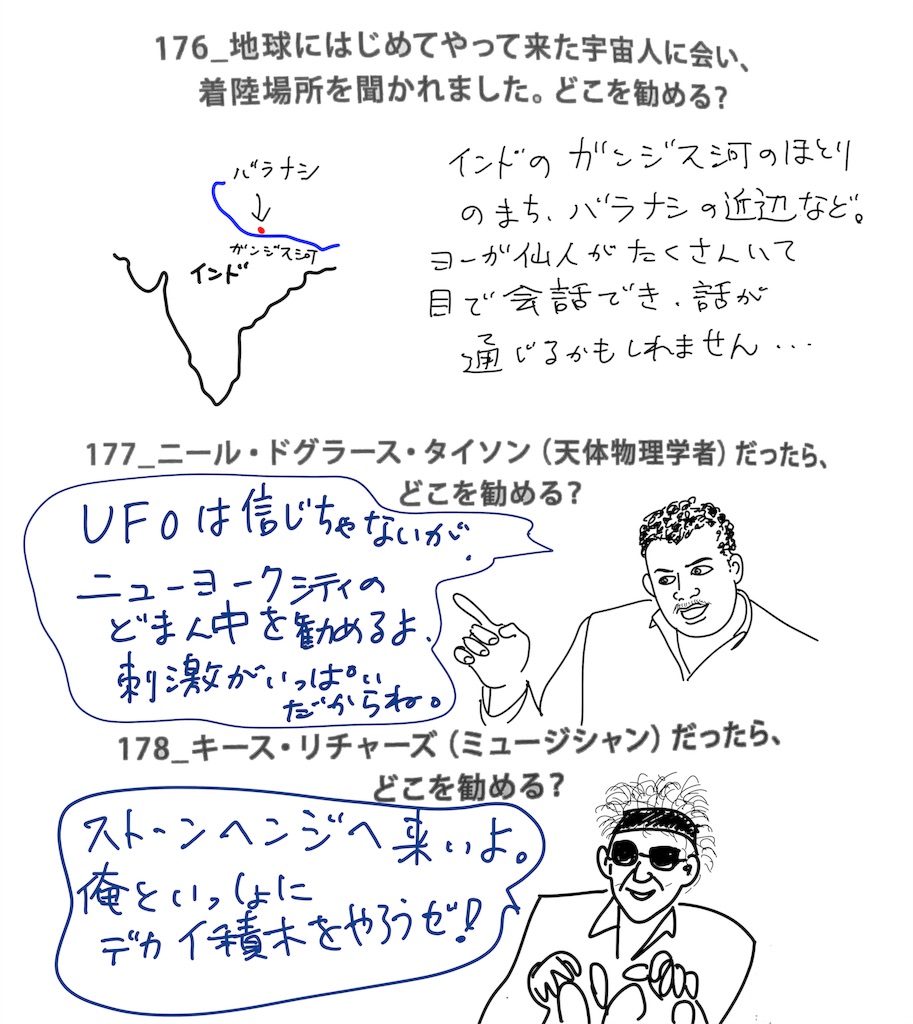 176_地球にはじめてやって来た宇宙人に会い、
着陸場所を聞かれました。どこを勧める?
バラナシ
ガンジス河
インド
インドの ガンジス河のほとり
のまち、バラナシの近辺など。
ヨーガ仙人がたくさんいて
目で会話でき、話が
通じるかもしれません...
177_ニール・ドグラース・タイソン(天体物理学者)だったら、
どこを勧める?
UFOは信じちゃないが、
ニューヨークシティの
どまん中を勧めるよ、
刺激がいっぱい
だからね。
178_キース・リチャーズ(ミュージシャン)だったら、
どこを勧める?
ストーンヘンジへ来いよ。
俺といっしょに
デカイ積木をやろうゼ!